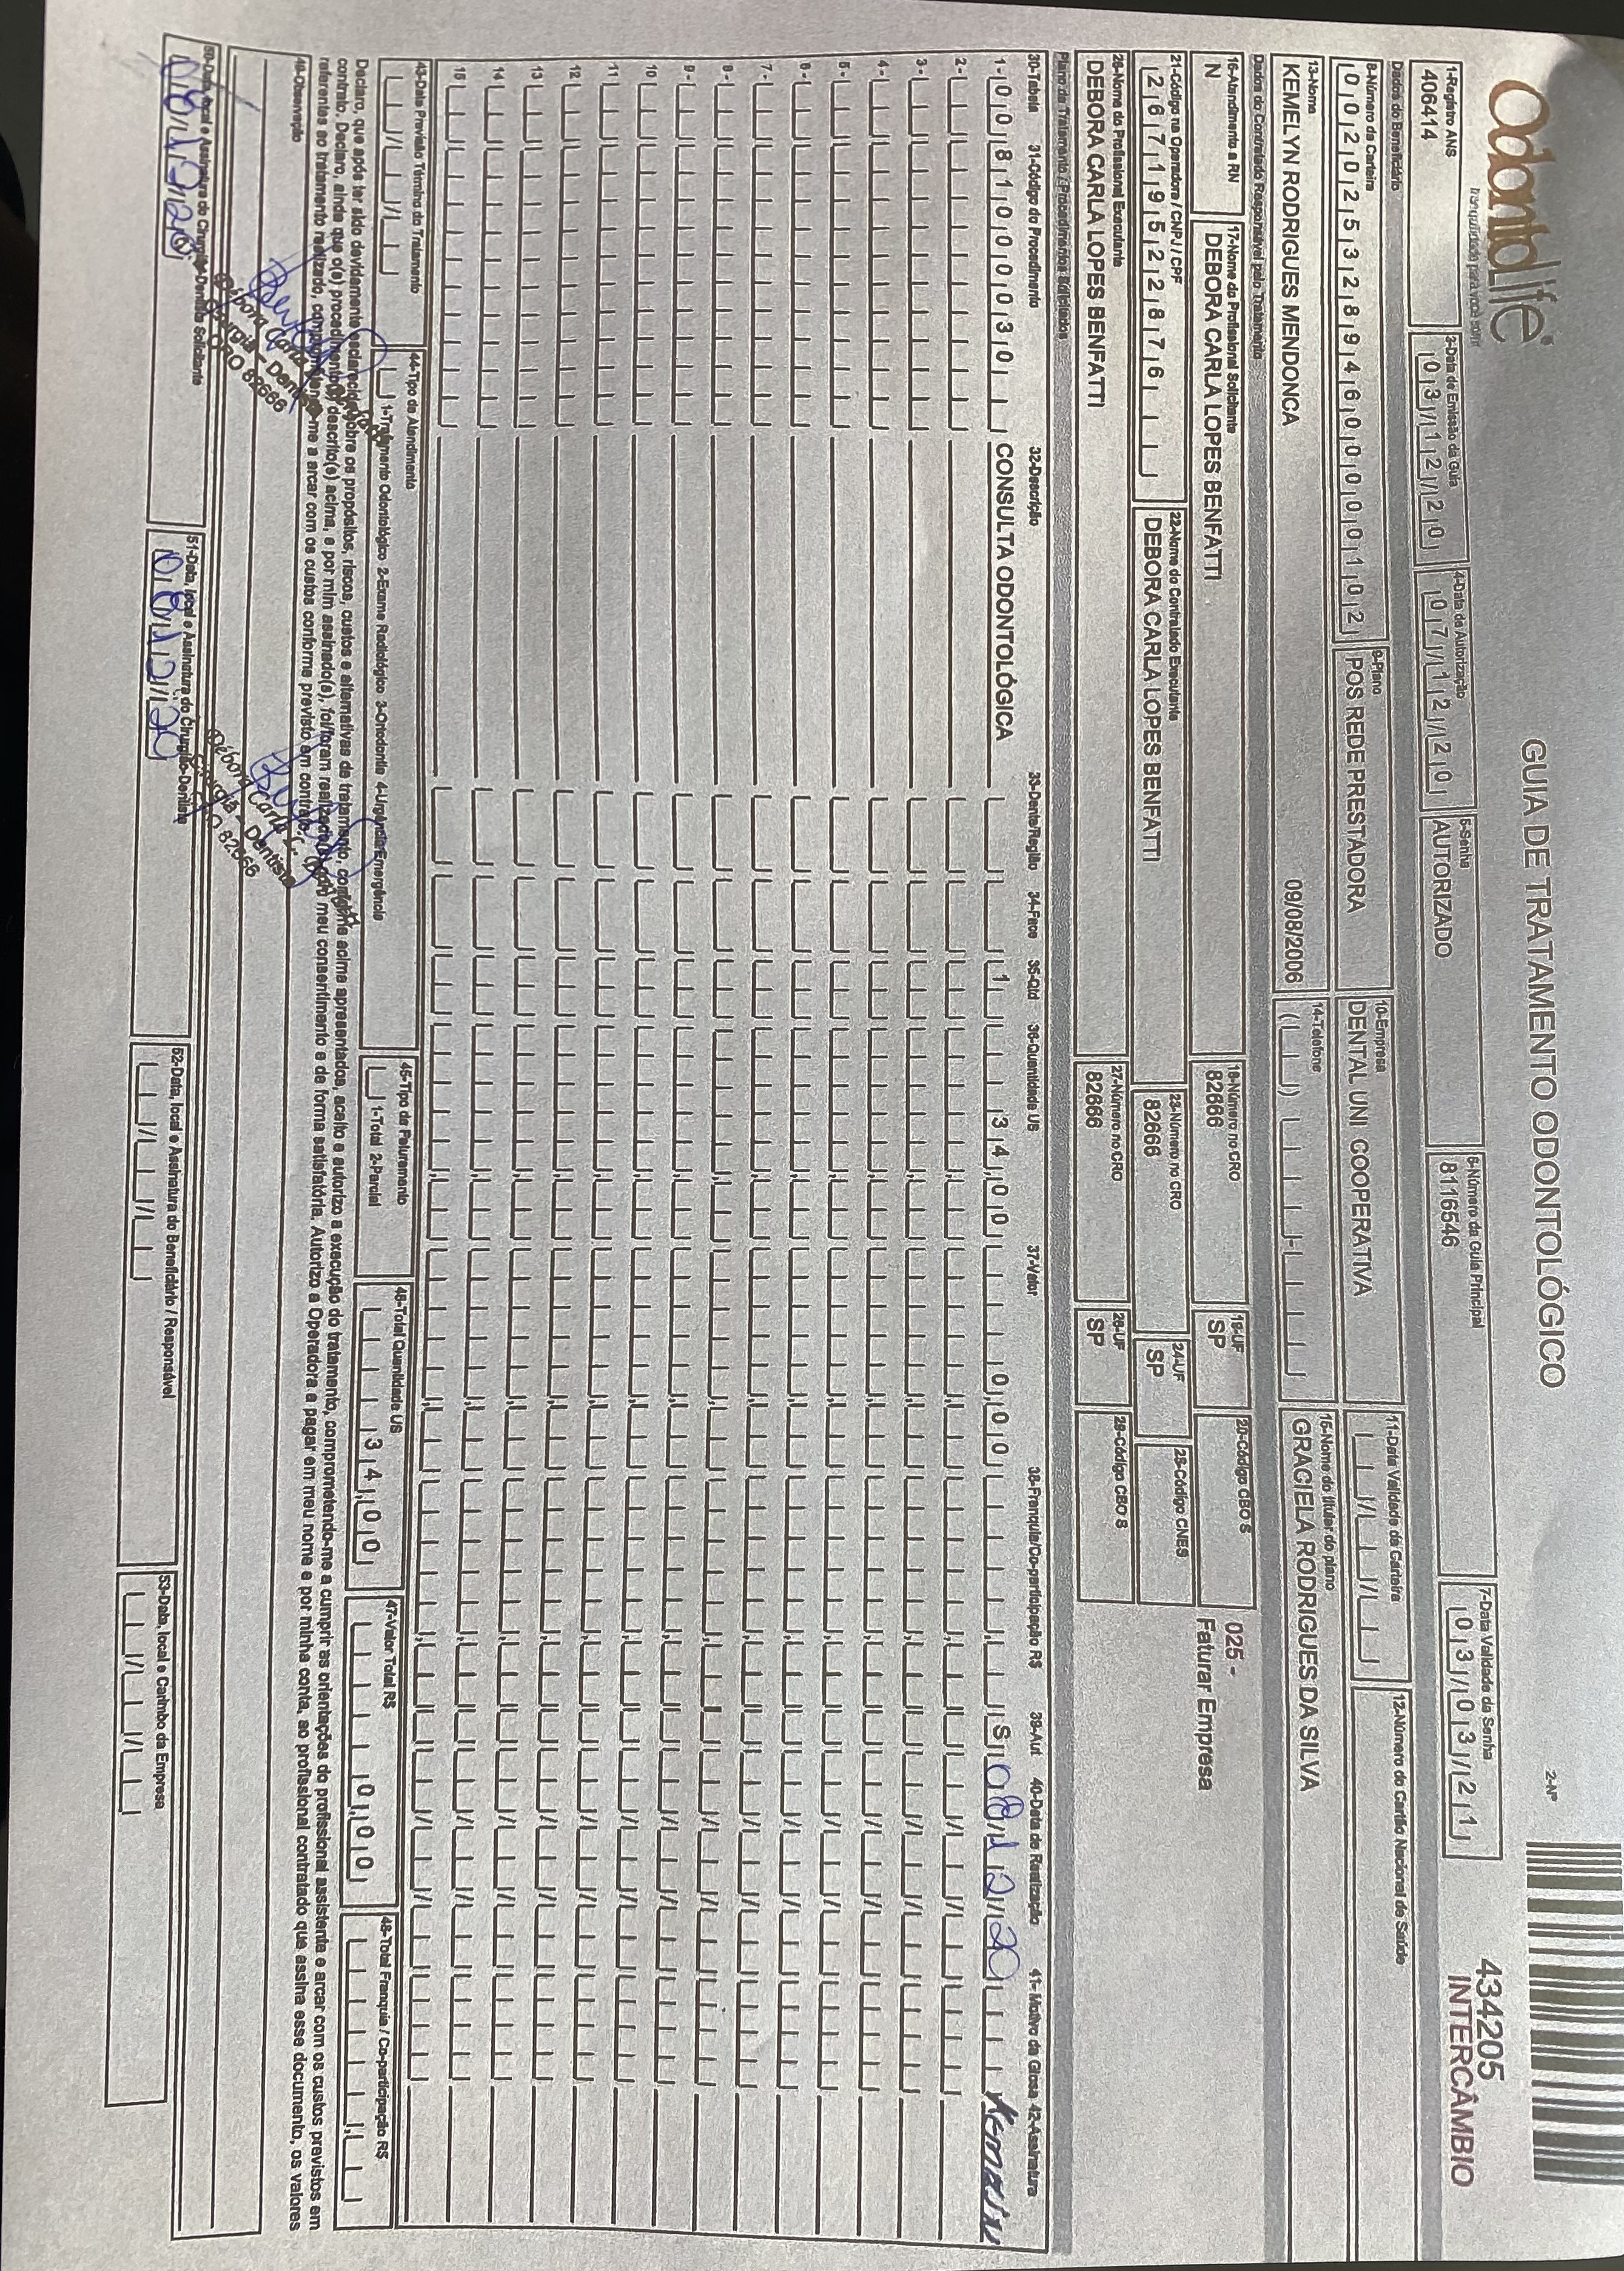 Odontolife
tranquilidade para você sorrir
GUIA DE TRATAMENTO ODONTOLÓGICO
2-Nº
434205
INTERCÂMBIO
1-Registro ANS
406414
3-Data de Emissão da Guia
03/12/20
4-Data da Autorização
07/12/20
5-Senha
AUTORIZADO
6-Número da Guia Principal
8116546
7-Data Validade da Senha
03/03/21
Dados do Beneficiário
8-Número da Carteira
00202532894600000102
9-Plano
POS REDE PRESTADORA
10-Empresa
DENTAL UNI COOPERATIVA
11-Data Validade da Carteira
12-Número do Cartão Nacional de Saúde
13-Nome
KEMELYN RODRIGUES MENDONCA
09/08/2006
14-Telefone
15-Nome do titular do plano
GRACIELA RODRIGUES DA SILVA
Dados do Contratado Responsável pelo Tratamento
16-Atendimento a RN
N
17-Nome do Profissional Solicitante
DEBORA CARLA LOPES BENFATTI
18-Número no CRO
82666
19-UF
SP
20-Código CBO S
025 -
Faturar Empresa
21-Código na Operadora / CNPJ / CPF
26719522876
22-Nome do Contratado Executante
DEBORA CARLA LOPES BENFATTI
23-Número no CRO
82666
24-UF
SP
25-Código CNES
26-Nome do Profissional Executante
DEBORA CARLA LOPES BENFATTI
27-Número no CRO
82666
28-UF
SP
29-Código CBO S
Plano de Tratamento / Procedimentos Solicitados
30-Tabela 31-Código do Procedimento 32-Descrição 33-Dente/Região 34-Face 35-Qtd 36-Quantidade US 37-Valor 38-Franquia/Co-participação R$ 39-Aut 40-Data de Realização 41- Motivo da Glosa 42-Assinatura
1- 00 81000030 CONSULTA ODONTOLÓGICA 1 34,00 0,00 S 08/12/20
2-
3-
4-
5-
6-
7-
8-
9-
10
11
12
13
14
15
43-Data Previsão Término do Tratamento
44-Tipo de Atendimento
1-Tratamento Odontológico 2-Exame Radiológico 3-Ortodontia 4-Urgência/Emergência
45-Tipo de Faturamento
1-Total 2-Parcial
46-Total Quantidade US
34,00
47-Valor Total R$
0,00
48-Total Franquia / Co-participação R$
Declaro, que após ter sido devidamente esclarecido sobre os propósitos, riscos, custos e alternativas de tratamento, conforme acima apresentados, aceito e autorizo a execução do tratamento, comprometendo-me a cumprir as orientações do profissional assistente e arcar com os custos previstos em
contrato. Declaro, ainda que o(s) procedimento(s) descrito(s) acima, e por mim assinado(s), foi/foram realizado(s) com meu consentimento e de forma satisfatória. Autorizo a Operadora a pagar em meu nome e por minha conta, ao profissional contratado que assina esse documento, os valores
referentes ao tratamento realizado, comprometendo-me a arcar com os custos conforme previsto em contrato.
49-Observação
50-Data, local e Assinatura do Cirurgião-Dentista Solicitante
08/12/20
Cirurgiã - Dentista
CRO 82666
51-Data, local e Assinatura do Cirurgião-Dentista
08/12/20
Débora Carla L.
Cirurgiã - Dentista
CRO 82666
52-Data, local e Assinatura do Beneficiário / Responsável
53-Data, local e Carimbo da Empresa